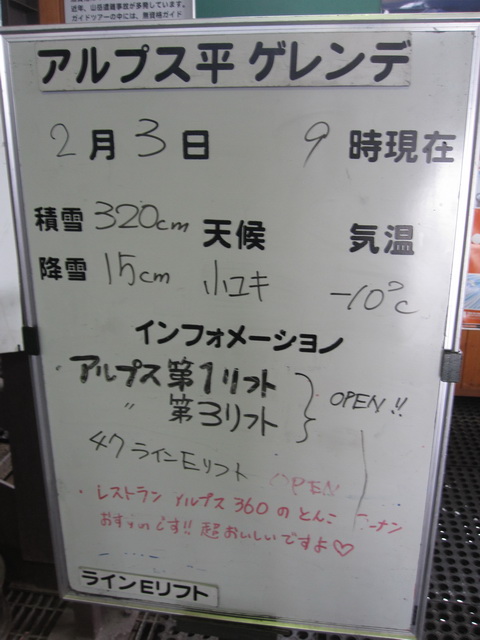 近年、山岳遭難事故が多発しています。
ガイドツアーの中には、無資格ガイド
アルプス平 ゲレンデ
2月3日 9時現在
積雪 320cm 天候 気温
降雪 15cm 小ユキ -10℃
インフォメーション
・アルプス第1リフト
〃 第3リフト OPEN!!
47ラインEリフト OPEN
・レストラン アルプス360のとんこ ーナン
おすすめです!! 超おいしいですよ♡
ラインEリフト